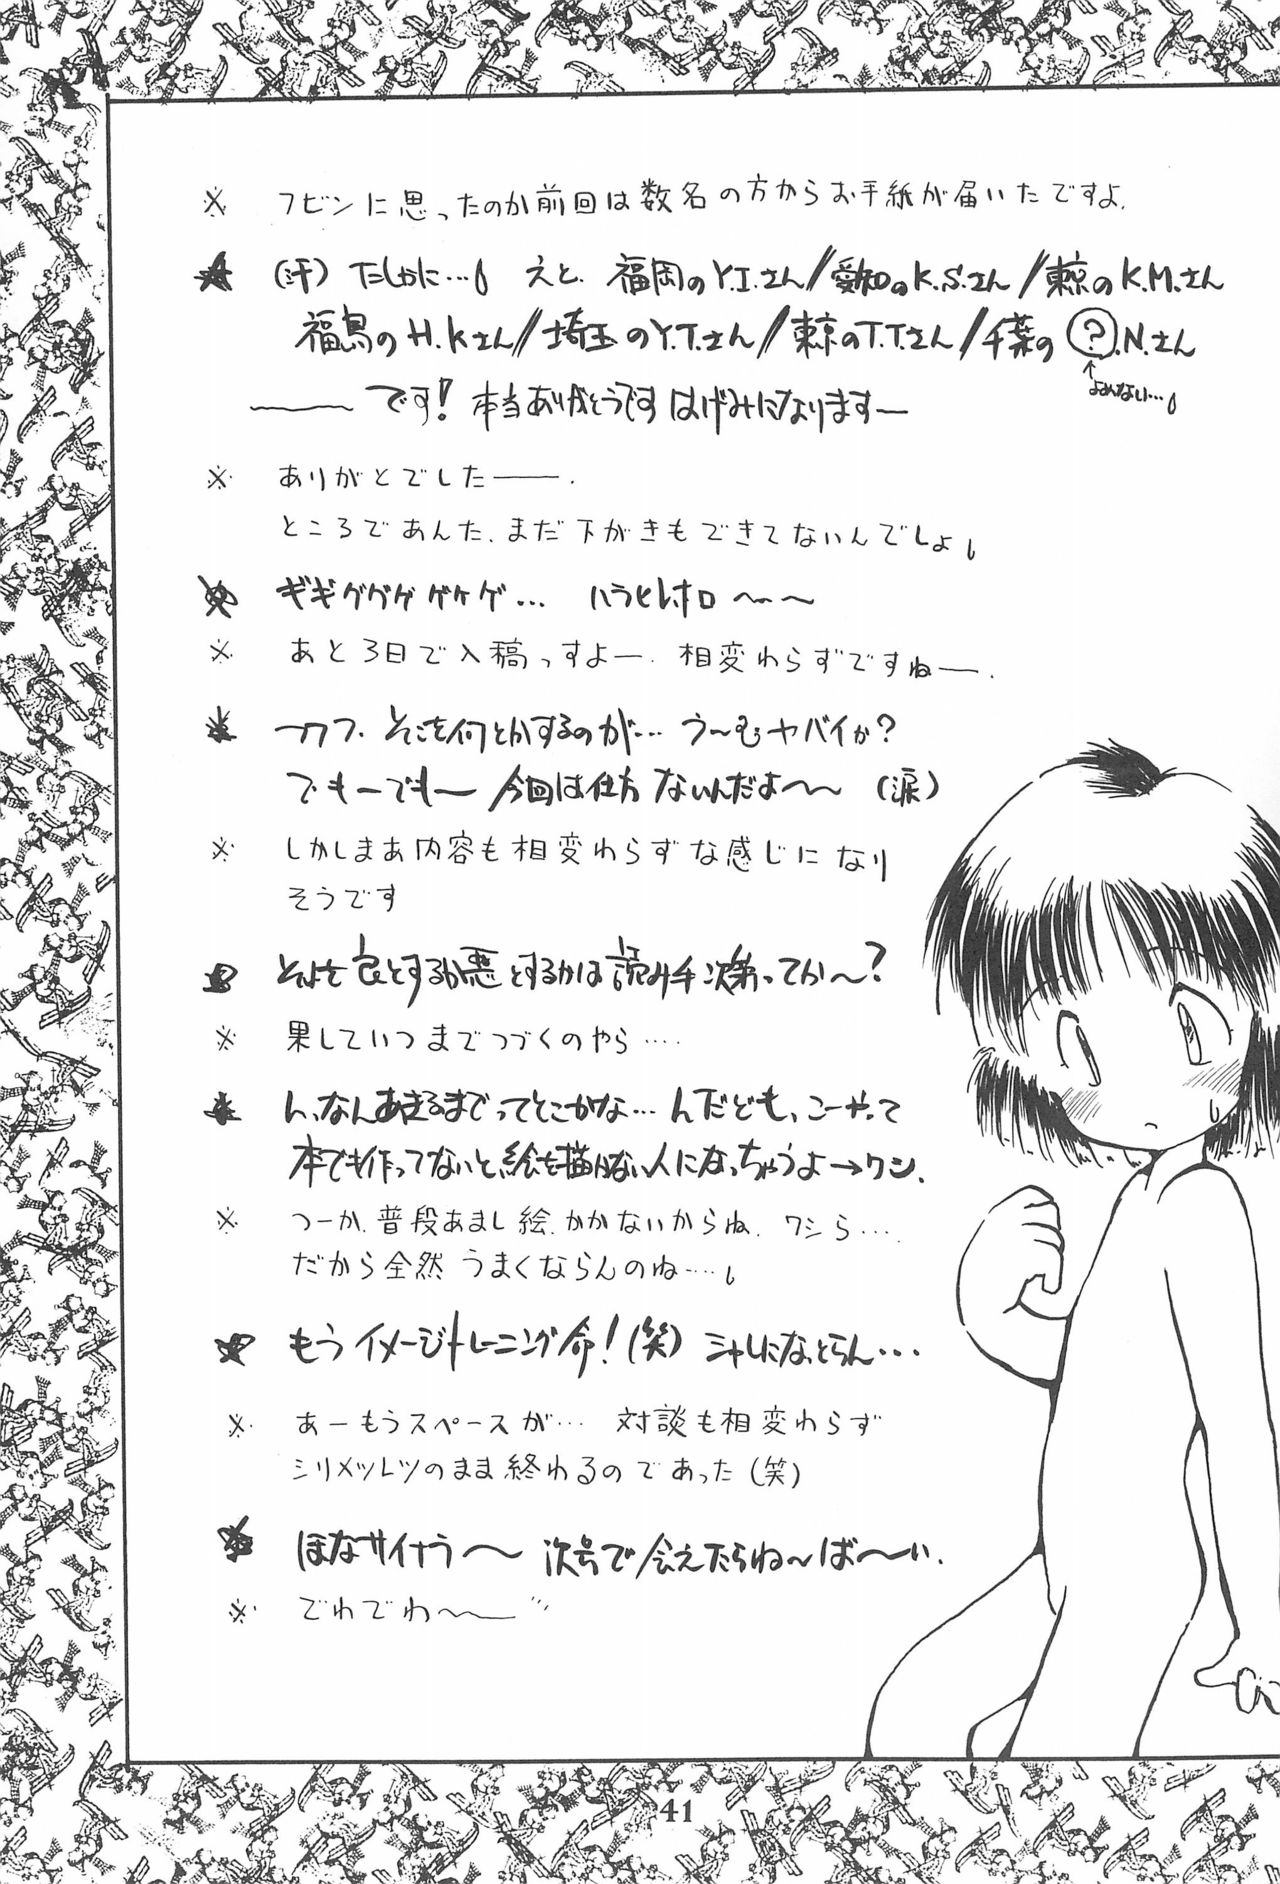 ※ フビンに思ったのか前回は数名の方からお手紙が届いたですよ.
★ (汗) たしかに… えと、福岡のY.I.さん//愛知のK.S.さん//東京のK.M.さん
福島のH.Kさん//埼玉のY.T.さん//東京のT.T.さん//千葉の ?.N.さん
↑よめない…
―― です! 本当ありがとうです はげみになります―
※ ありがとでした――.
ところであんた、まだ下がきもできてないんでしょ
★ ギギググゲゲケゲ… ハラヒレホロ~~
※ あと3日で入稿っすよー. 相変わらずですねー.
★ フフフ、そこを何とかするのが… う~むヤバイか?
でもーでもー 今回は仕方ないんだよ~~ (涙)
※ しかしまあ内容も相変わらずな感じになり
そうです
★ それを良とするか悪とするかは読み手次第ってか~?
※ 果していつまでつづくのやら….
★ ん、なんあきるまでってとこかな… んだども、こーやって
本でも作ってないと、絵を描かない人になっちゃうよ→ワシ.
※ つーか、普段あまし絵、かかないからね、ワシら….
だから全然うまくならんのね…
★ もうイメージトレーニング命!(笑) シャレになっとらん…
※ あーもうスペースが… 対談も相変わらず
シリメツレツのまま終わるのであった(笑)
★ ほなサイナラ~ 次号で会えたらね~ば~い.
※ でわでわ~―
41